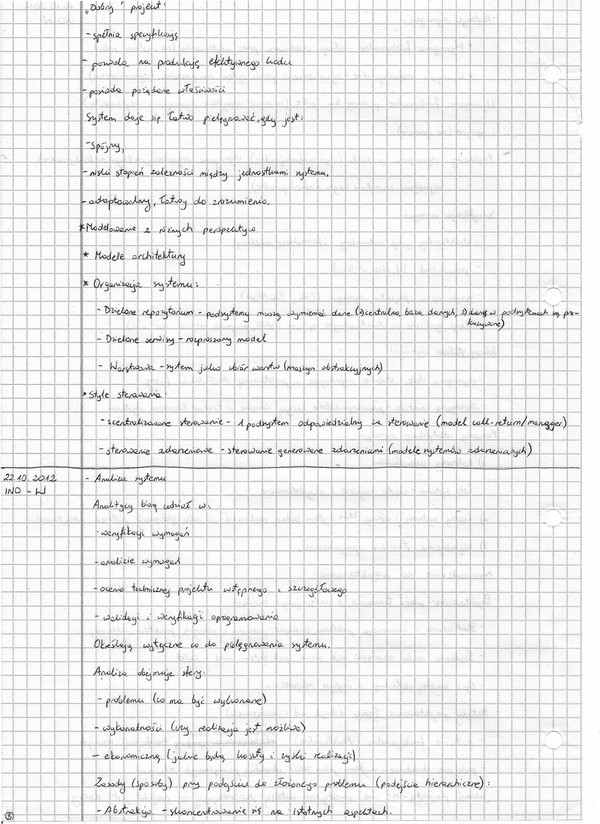 „Dobry" projekt:
- spełnia specyfikację
- pozwala na produkcję efektywnego kodu
- posiada pożądane właściwości
System daje się łatwo pielęgnować, gdy jest:
- spójny,
- niski stopień zależności między jednostkami systemu,
- adaptowalny, łatwy do zrozumienia.
* Modelowanie z różnych perspektyw
* Modele architektury
* Organizacja systemu:
- Dzielone repozytorium - podsystemy muszą wymieniać dane (1) centralna baza danych, 2) dane w podsystemach są prze-
kazywane)
- Dzielone serwisy - rozproszony model
- Warstwowa - system jako zbiór warstw (maszyn abstrakcyjnych)
* Style sterowania
- scentralizowane sterowanie - 1 podsystem odpowiedzialny za sterowanie (model call-return/manager)
- sterowanie zdarzeniowe - sterowanie generowane zdarzeniami (modele systemów zdarzeniowych)
22.10.2012 - Analiza systemu
INO - W
Analitycy biorą udział w:
- weryfikacji wymagań
- analizie wymagań
- ocenie technicznej projektu wstępnego i szczegółowego
- walidacji i weryfikacji oprogramowania
Określają wytyczne co do pielęgnowania systemu.
Analiza obejmuje sfery:
- problemu (co ma być wykonane)
- wykonalności (czy realizacja jest możliwa)
- ekonomiczną (jakie będą koszty i zyski realizacji)
Zasady (sposoby) przy podejściu do złożonego problemu (podejście hierarchiczne):
- Abstrakcja - skoncentrowanie się na istotnych aspektach.
5